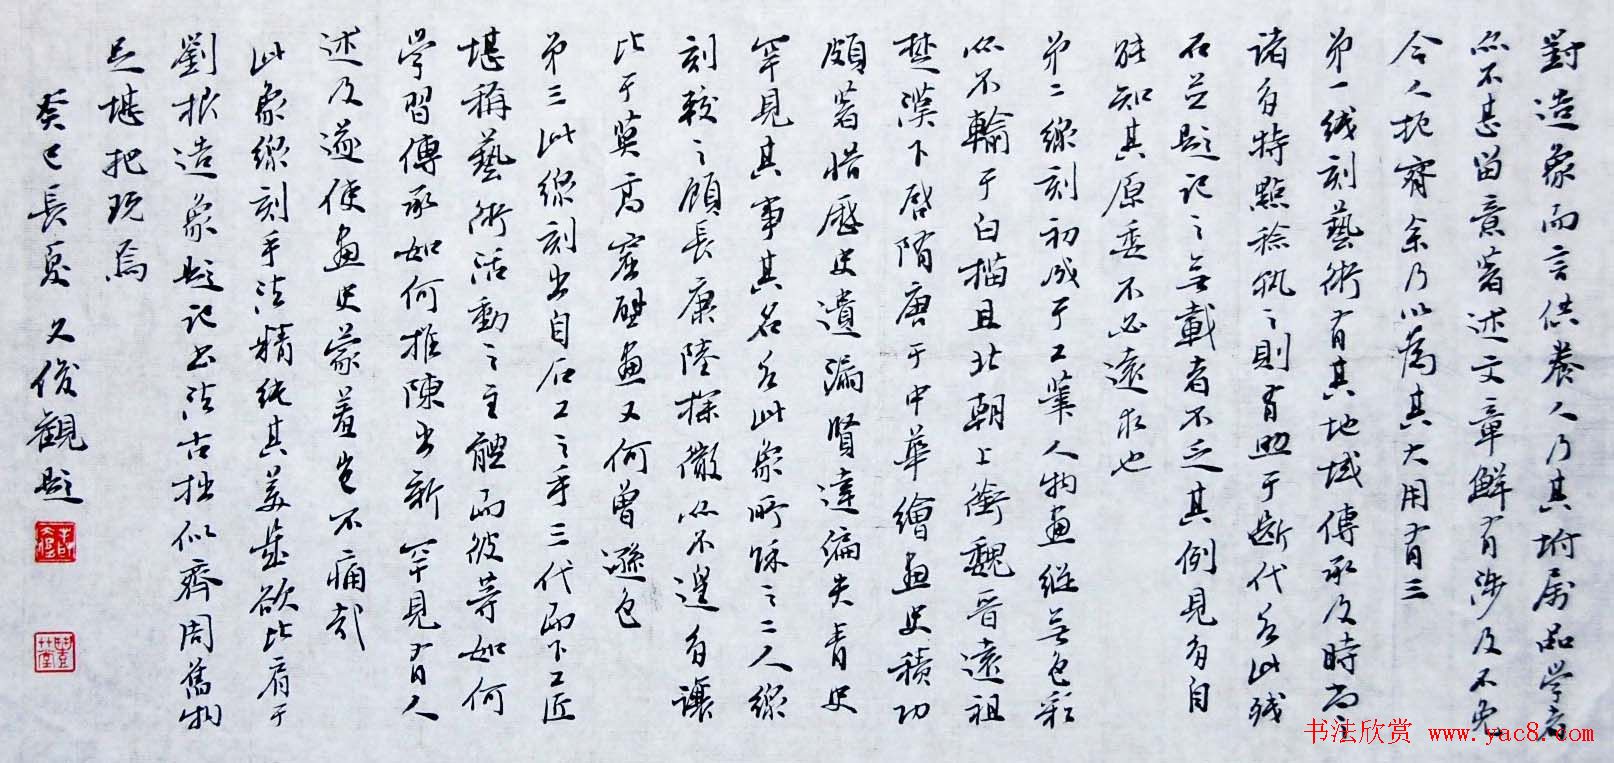 對造象而言供養人乃其坿屬品學者
亦不甚留意著述文章鮮有涉及不免
令人扼窘余乃以為其大用有三
第一線刻藝術有其地域傳承及時尚之
諸多特點稔孰之則有助于斷代名此殘
石並題記之無載者不乏其例見多自
能知其原委不必遠求也
第二線刻初成于工筆人物畫縱無色彩
亦不輸于白描且北朝上銜魏晉遠祖
楚漢下啓隋唐于中華繪畫史積功
頗著惜歷史遺漏賢達偏失青史
罕見其事其名若此象所脉之二人線
刻較之顧長康陸探微亦不遑多讓
比于莫高窟壁畫又何曾遜色
第三此線刻出自石工之手三代而下工匠
堪稱藝術活動之主體而彼等如何
學習傳承如何推陳出新罕見有人
述及遂使畫史蒙羞豈不痛哉
此象線刻手法精純其美幾欲比肩于
劉根造象題記書法古拙似齊周舊物
足堪把玩焉
癸巳長夏文俊觀題
书法欣赏 www.yac8.com